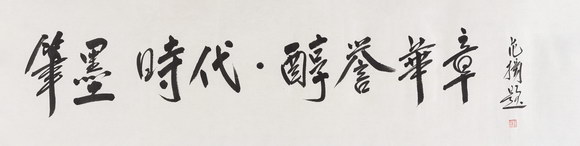 筆墨時代·醇譽華章
范揚題